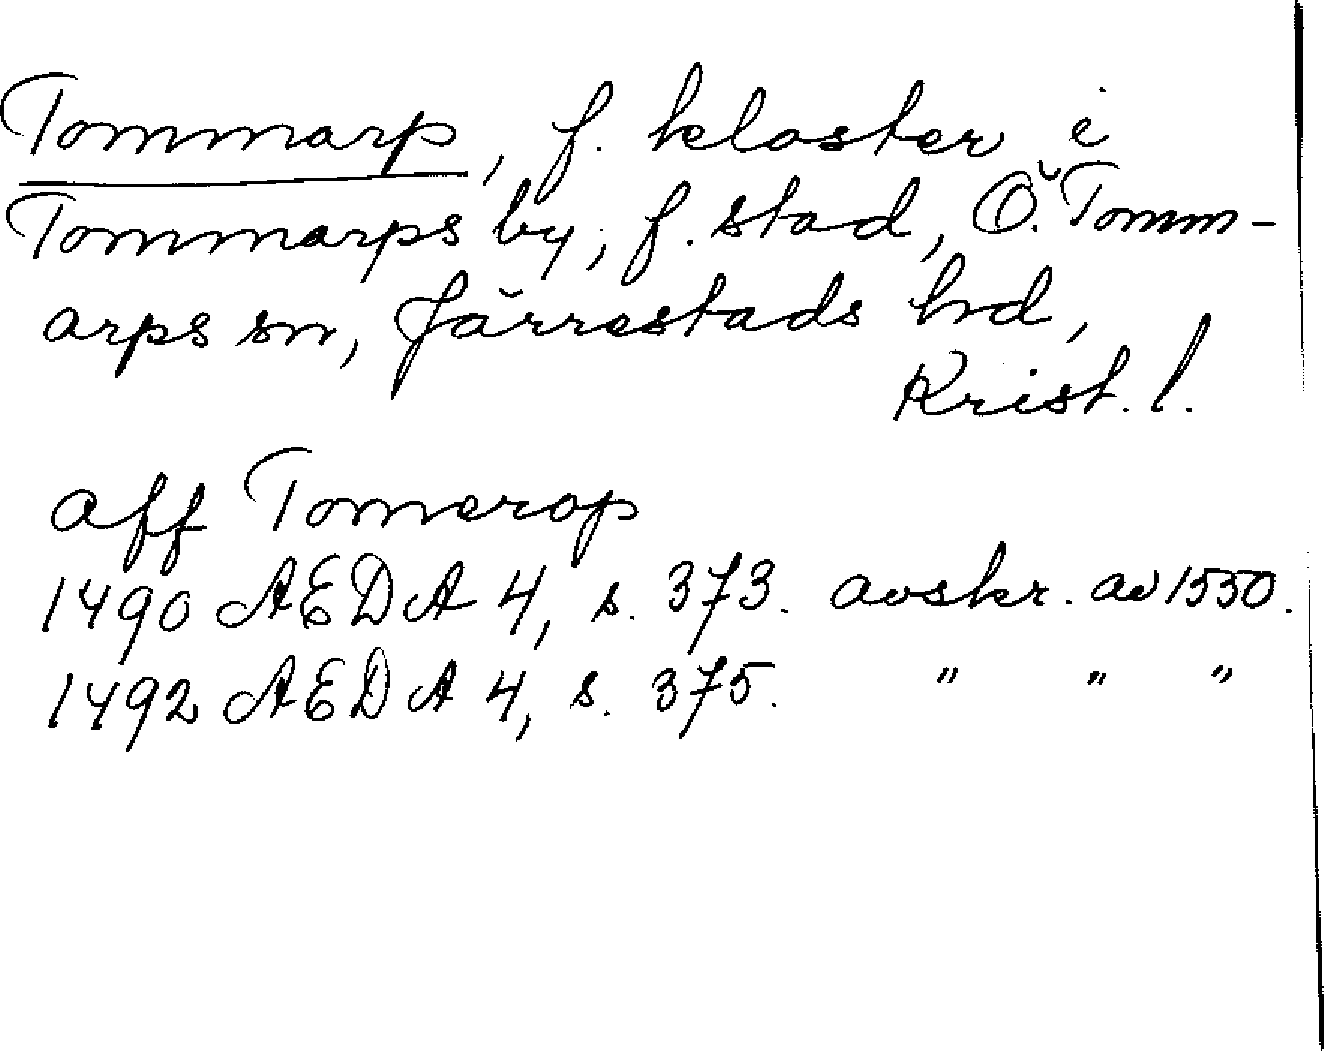 Tommarp, f. kloster i
Tommarps by, f. stad, Ö. Tomm-
arps sn, Järrestads hd,
Krist. l.
aff Tomerop
1490 AEDA 4, s. 373. avskr. av 1550.
1492 AEDA 4, s. 375. " " "